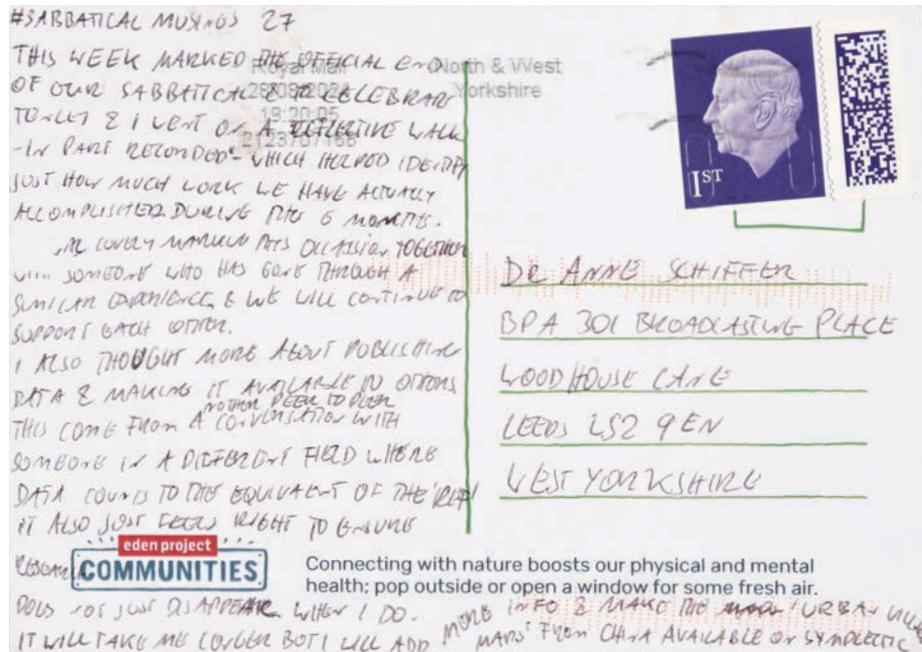 #SABBATICAL MUSINGS 27
THIS WEEK MARKED THE OFFICIAL END
OF OUR SABBATICAL & TO CELEBRATE
& I WENT ON A REFLECTIVE WALK
-IN PART RECORDED- WHICH HELPED IDENTIFY
JUST HOW MUCH WORK WE HAVE ACTUALLY
ACCOMPLISHED DURING THIS 6 MONTHS.
LOVELY MARKING THIS OCCASION TOGETHER
WITH SOMEONE WHO HAS GONE THROUGH A
SIMILAR EXPERIENCE & WE WILL CONTINUE TO
SUPPORT EACH OTHER.
I ALSO THOUGHT MORE ABOUT PUBLISHING
DATA & MAKING IT AVAILABLE TO OTHERS
ANOTHER PEER TO PEER
THIS COME FROM A CONVERSATION WITH
SOMEONE IN A DIFFERENT FIELD WHERE
DATA COUNTS TO THE EQUIVALENT OF THE 'REF'
IT ALSO JUST FEELS RIGHT TO ENSURE
RESEARCH
DOES NOT JUST DISAPPEAR WHEN I DO.
IT WILL TAKE ME LONGER BUT I WILL ADD MORE INFO & MAKE THE 'URBAN VILLAGE
MAPS' FROM CHINA AVAILABLE ON SYMPLECTIC
Royal Mail
North & West
Yorkshire
19:20:05
1ST
DR ANNE SCHIFFER
BPA 301 BROADCASTING PLACE
WOODHOUSE LANE
LEEDS LS2 9EN
WEST YORKSHIRE
eden project
COMMUNITIES
Connecting with nature boosts our physical and mental
health; pop outside or open a window for some fresh air.